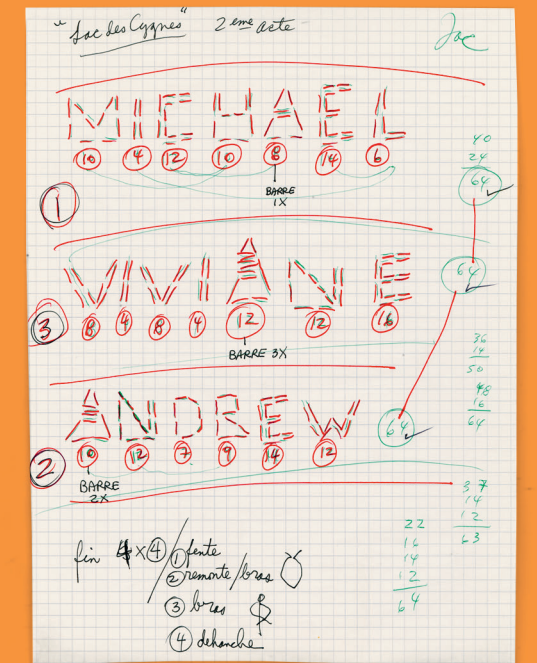 "Lac des Cygnes" 2 eme acte
Jac
MICHAEL
10 4 12 10 8 14 6
BARRE
1X
1
40
24
64
VIVIANE
8 4 8 4 12 12 16
BARRE 3X
3
64
36
14
50
48
16
64
ANDREW
10 12 7 9 14 12
64
BARRE
2X
2
37
14
12
63
fin 4 X 4
1 fente
2 remonte/bras
3 bras
4 dehanche
22
16
14
12
64